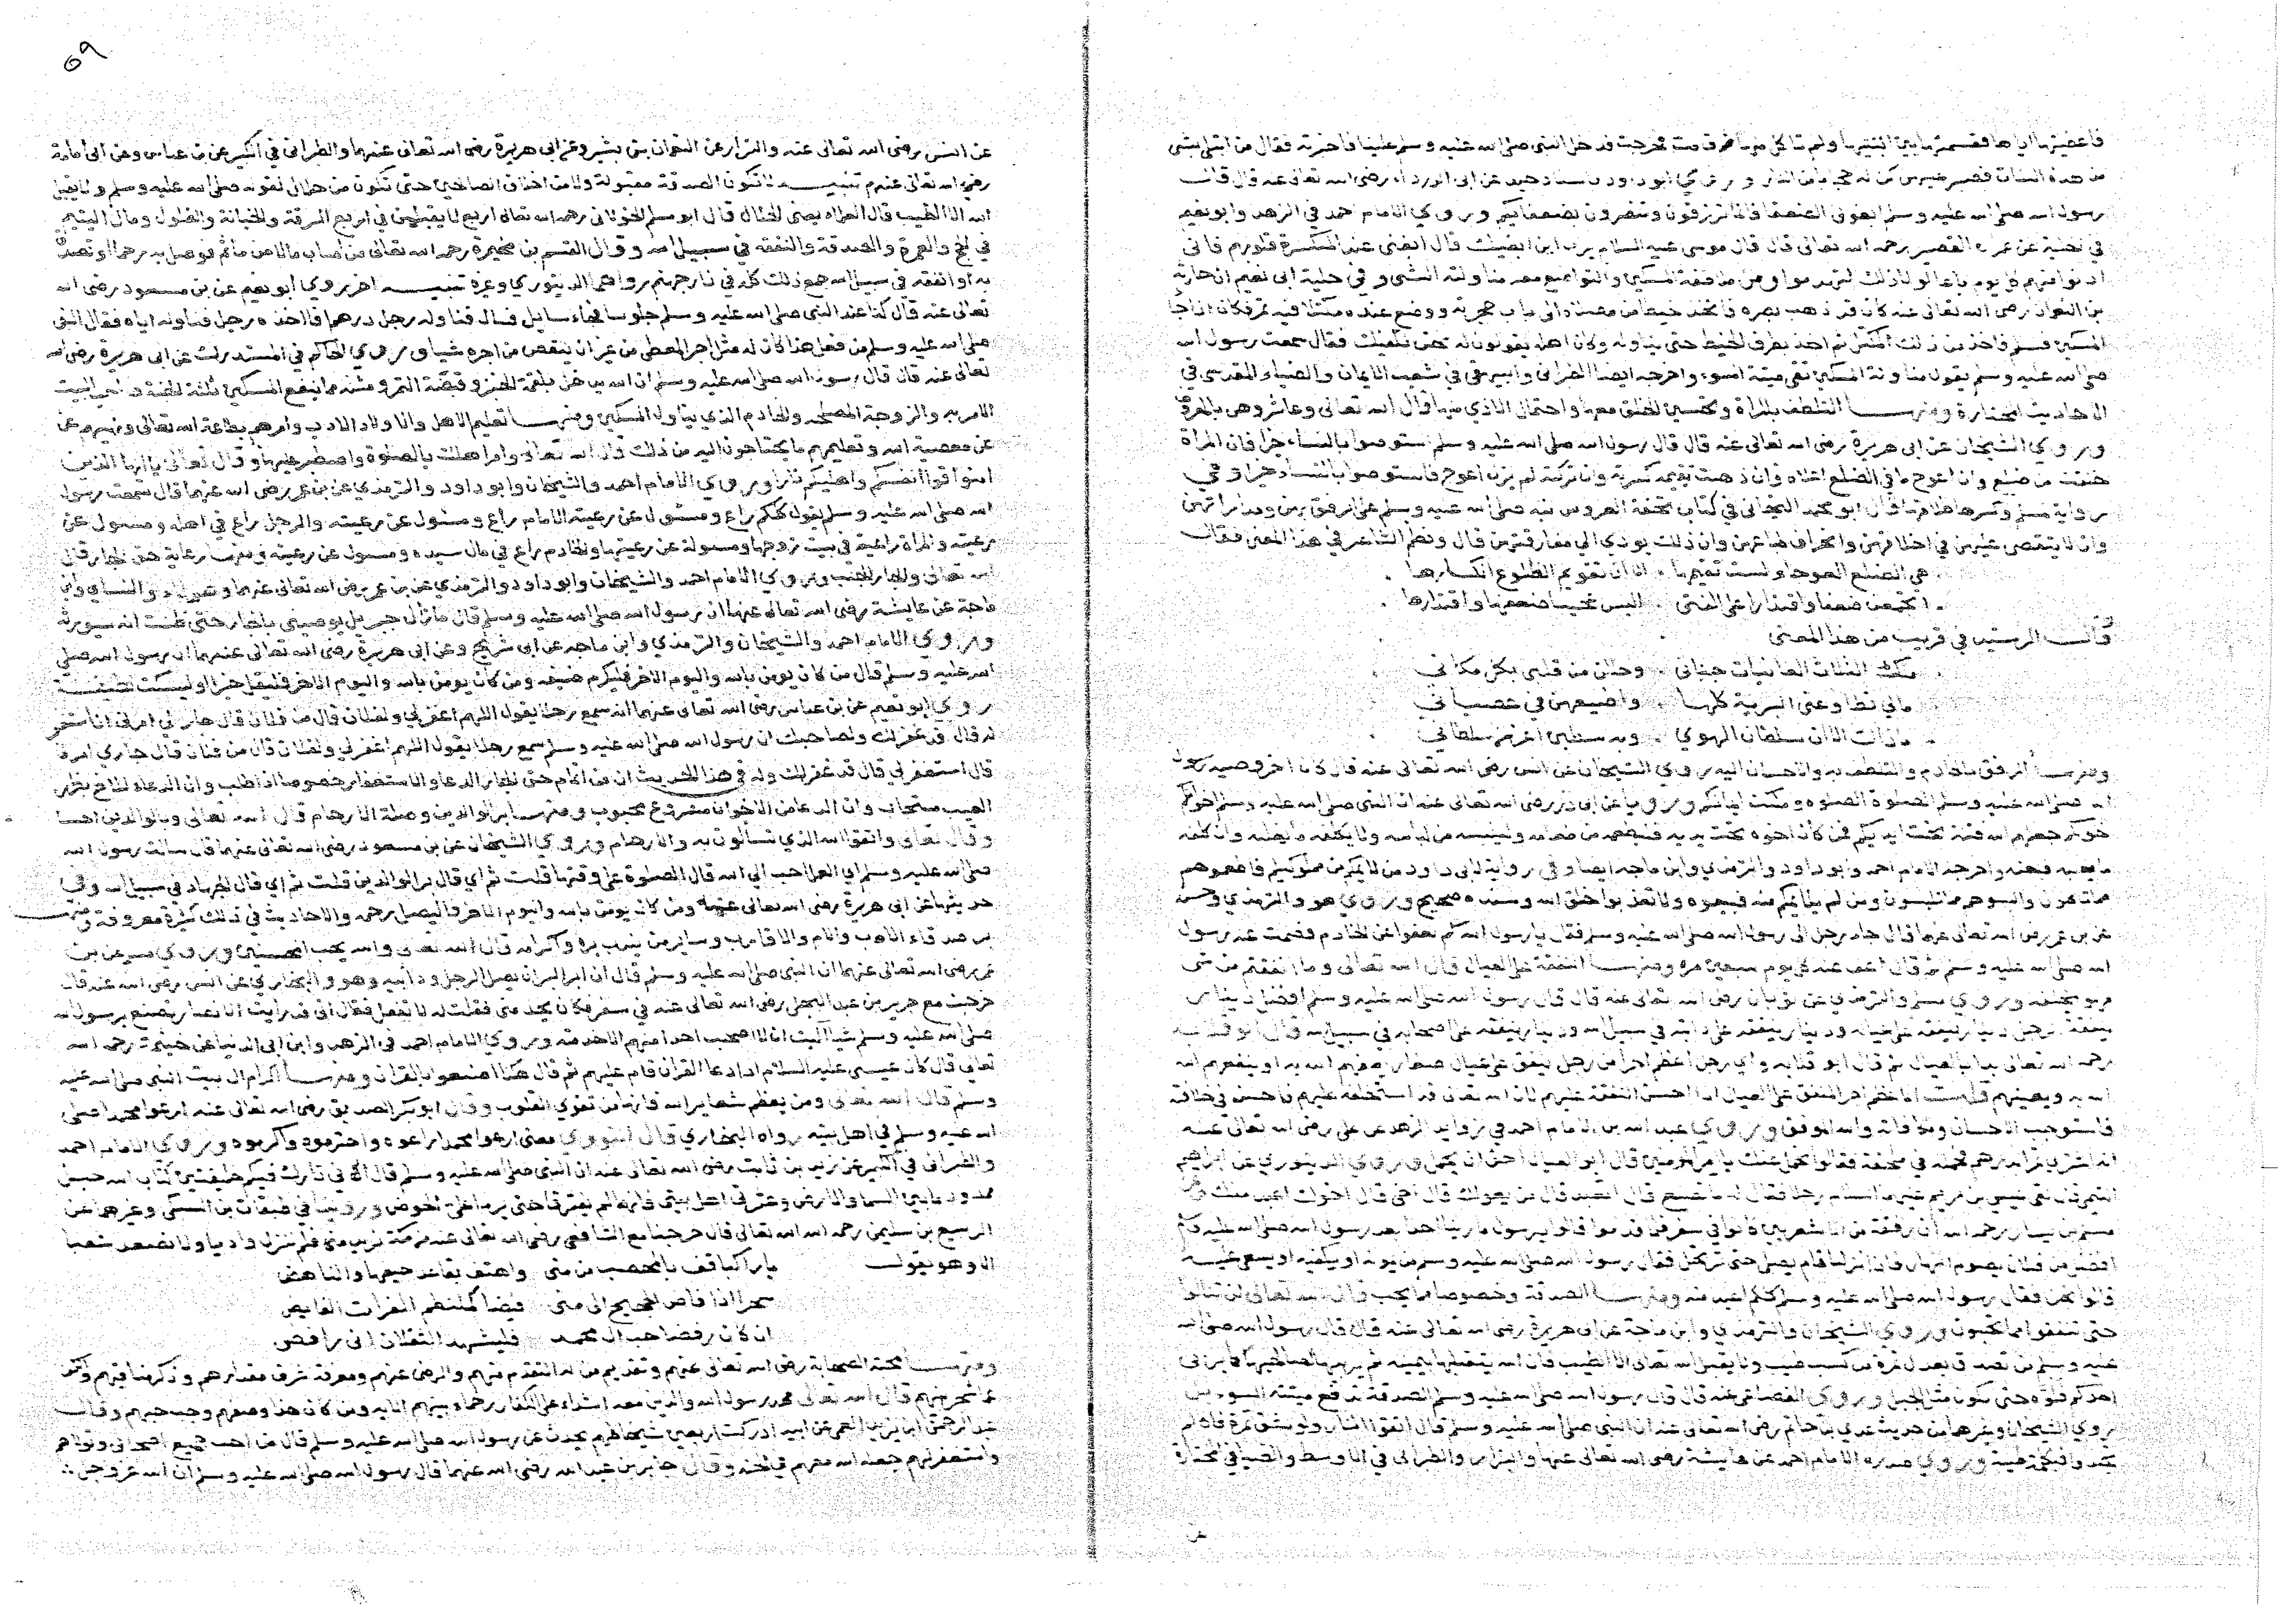 فاعطيتها اياها فقسمتها بين ابنتيها ولم تاكل منها ثم قامت فخرجت فدخل النبي صلى الله عليه وسلم علينا فاخبرته فقال من ابتلي بشي
من هذه البنات فصبر عليهن كن له حجابا من النار وروي ابو داود باسناد جيد عن ابي الدرداء رضي الله تعالى عنه قال قال
رسول الله صلى الله عليه وسلم ابغوني الضعفا فانما ترزقون وتنصرون بضعفايكم وروي الامام احمد في الزهد وابو نعيم
في الحلية عن عمران القصير رحمه الله تعالى قال قال موسى عليه السلام يرب اين ابغيك قال ابغني عند المنكسرة قلوبهم فاني
ادنوا منهم كل يوم باعا ولولا ذلك لتهدموا ومن ملاطفة المسكين والتواضع معه مناولته الشي وفي حلية ابي نعيم ان حارثة
بن النعمان رضي الله تعالى عنه كان قد ذهب بصره فاتخذ خيطا من مصلاه الى باب حجرته ووضع عنده مكتلا فيه تمر فكان اذا جا
المسكين فسلم فاخذ من ذلك المكتل ثم اخذ بطرف الخيط حتى يناوله وكان اهله يقولون له نحن نكفيك فقال سمعت رسول الله
صلى الله عليه وسلم يقول مناولة المسكين تقي ميتة السوء واخرجه ايضا الطبراني والبيهقي في شعب الايمان والضياء المقدسي في
الاحاديث المختارة ومنها التلطف بالمراة وتحسين الخلق معها واحتمال الاذي منها قال الله تعالى وعاشروهن بالمعروف
وروي الشيخان عن ابي هريرة رضي الله تعالى عنه قال قال رسول الله صلى الله عليه وسلم استوصوا بالنساء خيرا فان المراة
خلقت من ضلع وان اعوج ما في الضلع اعلاه وان ذهبت تقيمه كسرته وان تركته لم يزل اعوج فاستوصوا بالنساء خيرا وفي
رواية مسلم وكسرها طلاقها قال ابو محمد التجاني في كتاب تحفة العروس نبه صلى الله عليه وسلم على الرفق بهن ومداراتهن
وان لا يتقصى عليهن في اخلاقهن وانحراف طباعهن وان ذلك يودي الى مفارقتهن قال ونظم الشاعر في هذا المعنى فقال
هي الضلع العوجا ولست تقيمها الا ان تقويم الضلوع انكسارها
اتجمعن ضعفا واقتدارا على الفتى اليس عجيبا ضعفها واقتدارها
وقال الرشيد في قريب من هذا المعنى
ملك الثلاث الغانيات عناني وحللن من قلبي بكل مكاني
مالي تطاوعني البرية كلها واطيعهن وهن في عصياني
ما ذاك الا ان سلطان الهوي وبه سطين اعز من سلطاني
ومنها الرفق بالخادم والتلطف به والاحسان اليه روي الشيخان عن انس رضي الله تعالى عنه قال كان اخر وصية رسول
الله صلى الله عليه وسلم الصلوة الصلوة وما ملكت ايمانكم ورويا عن ابي ذر رضي الله تعالى عنه ان النبي صلى الله عليه وسلم اخوانكم
خولكم جعلهم الله فتنة تحت ايديكم فمن كان اخوه تحت يديه فليطعمه من طعامه وليلبسه من لباسه ولا يكلفه ما يغلبه وان كلفه
ما يغلبه فليعنه واخرجه الامام احمد وابو داود والترمذي وابن ماجه ايضا وفي رواية لابي داود من لايمكم من مملوكيكم فاطعموهم
مما تاكلون والبسوهم مما تلبسون ومن لم يلايمكم منهم فبيعوه ولا تعذبوا خلق الله وسنده صحيح وروي هو والترمذي وحسنه
عن بن عمر رضي الله تعالى عنهما قال جاء رجل الى رسول الله صلى الله عليه وسلم فقال يا رسول الله كم نعفوا عن الخادم فصمت عنه رسول
الله صلى الله عليه وسلم ثم قال اعف عنه كل يوم سبعين مرة ومنها النفقة على العيال قال الله تعالى وما انفقتم من شي
فهو يخلفه وروي مسلم والترمذي عن ثوبان رضي الله تعالى عنه قال قال رسول الله صلى الله عليه وسلم افضل دينار
ينفقه الرجل دينار ينفقه على عياله ودينار ينفقه على دابته في سبيل الله ودينار ينفقه على اصحابه في سبيل الله قال ابو قلابة
رحمه الله تعالى بدا بالعيال ثم قال ابو قلابة واي رجل اعظم اجرا من رجل ينفق على عيال صغار يعفهم الله به او ينفعهم الله
الله به ويغنيهم قلت انما عظم اجر المنفق على العيال اذا احسن النفقة عليهم لان الله تعالى قد استخلفه عليهم فاحسن في خلافته
فاستوجب الاحسان ومكافاته والله الموفق وروي عبد الله بن الامام احمد في زوايد الزهد عن علي رضي الله تعالى عنه
انه اشترى تمرا بدرهم فحمله في ملحفة فقالوا نحمل عنك يا امير المومنين قال ابو العيال احق ان يحمل وروي الدينوري عن ابراهيم
التيمي قال لقي عيسى بن مريم عليهما السلام رجلا فقال له ما تصنع قال اتعبد قال من يعولك قال اخي قال اخوك اعبد منك وعن
مسلم بن يسار رحمه الله ان رفقة من الاشعريين كانوا في سفر فلما قدموا قالوا يرسول الله ما راينا احدا بعد رسول الله صلى الله عليه وسلم
افضل من فلان يصوم النهار فاذا نزلنا قام يصلي حتى نرتحل فقال رسول الله صلى الله عليه وسلم من يمونه او يكفيه او يسعى عليه
قالوا نحن فقال رسول الله صلى الله عليه وسلم كلكم اعبد منه ومنها الصدقة وخصوصا مما يحب قال الله تعالى لن تنالوا
حتى تنفقوا مما تحبون وروي الشيخان والترمذي وابن ماجة عن ابي هريرة رضي الله تعالى عنه قال قال رسول الله صلى الله
عليه وسلم من تصدق بعدل تمرة من كسب طيب ولا يقبل الله تعالى الا الطيب فان الله يتقبلها بيمينه ثم يربيها لصاحبها كما يربي
احدكم فلوه حتى تكون مثل الجبل وروي القضاعي عنه قال قال رسول الله صلى الله عليه وسلم الصدقة تدفع ميتة السوء
روي الشيخان وغيرهما من حديث عدي بن حاتم رضي الله تعالى عنه ان النبي صلى الله عليه وسلم قال اتقوا النار ولو بشق تمرة فان لم
يجد فبكلمة طيبة وروي صدره الامام احمد عن عايشة رضي الله تعالى عنها والبزار والطبراني في الاوسط والضيا في المختارة
عن
٥٩
عن انس رضي الله تعالى عنه والبزار عن النعمان بن بشير وعن ابي هريرة رضي الله تعالى عنهما والطبراني في الكبير عن بن عباس وعن ابي امامة
رضي الله تعالى عنهم تنبيه لا تكون الصدقة مقبولة ولا من اخلاق الصالحين حتى تكون من حلال لقوله صلى الله عليه وسلم ولا يقبل
الله الا الطيب قال العلماء يعني الحلال قال ابو مسلم الخولاني رحمه الله تعالى اربع لا يقبلن في اربع السرقة والخيانة والغلول ومال اليتيم
في الحج والعمرة والصدقة والنفقة في سبيل الله وقال القسم بن مخيمرة رحمه الله تعالى من اصاب مالا من ماثم فوصل به رحما او تصدق
به او انفقه في سبيل الله جمع ذلك كله في نار جهنم رواهما الدينوري وغيره تنبيه اخر روي ابو نعيم عن بن مسعود رضي الله
تعالى عنه قال كنا عند النبي صلى الله عليه وسلم جلوسا فجاء سايل فسال فناوله رجل درهما فاخذه رجل فناوله اياه فقال النبي
صلى الله عليه وسلم من فعل هذا كان له مثل اجر المعطي من غير ان ينقص من اجره شيا وروي الحاكم في المستدرك عن ابي هريرة رضي الله
تعالى عنه قال قال رسول الله صلى الله عليه وسلم ان الله يدخل بلقمة الخبز وقبضة التمر ومثله مما ينفع المسكين ثلثة الجنة صاحب البيت
الامر به والزوجة المصلحة والخادم الذي يناول المسكين ومنها تعليم الاهل والاولاد الادب وامرهم بطاعة الله تعالى ونهيهم عن
عن معصية الله وتعليمهم ما يحتاجون اليه من ذلك قال الله تعالى وامر اهلك بالصلوة واصطبر عليها وقال تعالى يا ايها الذين
امنوا قوا انفسكم واهليكم نارا وروي الامام احمد والشيخان وابو داود والترمذي عن بن عمر رضي الله عنهما قال سمعت رسول
الله صلى الله عليه وسلم يقول كلكم راع ومسئول عن رعيته الامام راع ومسئول عن رعيته والرجل راع في اهله ومسول عن
رعيته والمراة راعية في بيت زوجها ومسولة عن رعيتها والخادم راع في مال سيده ومسول عن رعيته ومنها رعاية حق الجار قال
الله تعالى والجار الجنب وروي الامام احمد والشيخان وابو داود والترمذي عن بن عمر رضي الله تعالى عنهما والنساي وابن
ماجة عن عايشة رضي الله تعالى عنها ان رسول الله صلى الله عليه وسلم قال مازال جبريل يوصيني بالجار حتى ظننت انه سيورثه
وروي الامام احمد والشيخان والترمذي وابن ماجه عن ابي شريح وعن ابي هريرة رضي الله تعالى عنهما ان رسول الله صلى
الله عليه وسلم قال من كان يومن بالله واليوم الاخر فليكرم ضيفه ومن كان يومن بالله واليوم الاخر فليقل خيرا او ليسكت
روي ابو نعيم عن بن عباس رضي الله تعالى عنهما انه سمع رجلا يقول اللهم اغفر لي ولفلان قال من فلان قال جار لي امرني ان استغفر
له قال قد غفر لك ولصاحبك ان رسول الله صلى الله عليه وسلم سمع رجلا يقول اللهم اغفر لي ولفلان قال من فلان قال جاري امرني
قال استغفر لي قال قد غفر لك وله في هذا الحديث ان من اكام حق الجار الدعا والاستغفار خصوصا اذا طلب وان الدعاء للاخ بظهر
الغيب مستجاب وان الدعا من الاخوان مشروع محبوب ومنها بر الوالدين وصلة الارحام قال الله تعالى وبالوالدين احسا
وقال تعالى واتقوا الله الذي تسالون به والارحام وروي الشيخان عن بن مسعود رضي الله تعالى عنهما قال سالت رسول الله
صلى الله عليه وسلم اي العمل احب الى الله قال الصلوة على وقتها قلت ثم اي قال بر الوالدين قلت ثم اي قال الجهاد في سبيل الله وفي
حديثهما عن ابي هريرة رضي الله تعالى عنه ومن كان يومن بالله واليوم الاخر فليصل رحمه والاحاديث في ذلك كثيرة معروفة ومنها
بر صدقاء الاب والام والاقارب وساير من يندب بره واكرامه قال الله تعالى والله يحب المحسنين وروي مسلم عن بن
عمر رضي الله تعالى عنهما ان النبي صلى الله عليه وسلم قال ان ابر البر ان يصل الرجل ود ابيه وهو والبخاري عن انس رضي الله عنه قال
خرجت مع جرير بن عبد الله البجلي رضي الله تعالى عنه في سفر فكان يخدمني فقلت له لا تفعل فقال اني قد رايت الانصار يصنع برسول الله
صلى الله عليه وسلم شيا اليت ان لا اصحب احدا منهم الا خدمته وروي الامام احمد في الزهد وابن ابي الدنيا عن خيثمة رحمه الله
تعالى قال كان عيسى عليه السلام اذا دعا القرآن قام عليهم ثم قال هكذا اصنعوا بالقران ومنها اكرام ال بيت النبي صلى الله عليه
وسلم قال الله تعالى ومن يعظم شعاير الله فانها من تقوي القلوب وقال ابو بكر الصديق رضي الله تعالى عنه ارقبوا محمدا صلى
الله عليه وسلم في اهل بيته رواه البخاري قال النووي معنى ارقبوا محمدا راعوه واحترموه واكرموه وروي الامام احمد
والطبراني في الكبير عن زيد بن ثابت رضي الله تعالى عنه ان النبي صلى الله عليه وسلم قال اني تارك فيكم خليفتين كتاب الله حبل
ممدود ما بين السما والارض وعترتي اهل بيتي وانهما لم يفترقا حتى يردا على الحوض وروينا في طبقات بن السبكي وغيرها عن
الربيع بن سليمن رحمه الله تعالى قال خرجنا مع الشافعي رضي الله تعالى عنه من مكة نريد منى فلم ننزل واديا ولم نصعد شعبا
الا وهو يقول يا راكبا قف بالمحصب من منى واهتف بقاعد خيفها والناهض
سحرا اذا فاض الحجيج الى منى فيضا كملتطم الفرات الفايض
ان كان رفضا حب ال محمد فليشهد الثقلان اني رافضي
ومنها محبة الصحابة رضي الله تعالى عنهم وتقديم من له التقدم منهم والرضى عنهم ومعرفة شرف مقدارهم وذكر مناقبهم والكف
عما شجر بينهم قال الله تعالى محمد رسول الله والذين معه اشداء على الكفار رحماء بينهم الاية ومن كان هذا وصفهم وجب حبهم وقال
عبد الرحمن بن زيد العمي عن ابيه ادركت اربعين شيخا كلهم يحدث عن رسول الله صلى الله عليه وسلم قال من احب جميع اصحابي وتولاهم
واستغفر لهم جعله الله معهم في الجنة وقال جابر بن عبد الله رضي الله عنهما قال رسول الله صلى الله عليه وسلم ان الله عز وجل